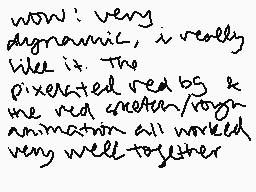 wow! very
dynamic, i really
like it. The
pixelated red bg &
the red sketch/rough
animation all worked
very well together